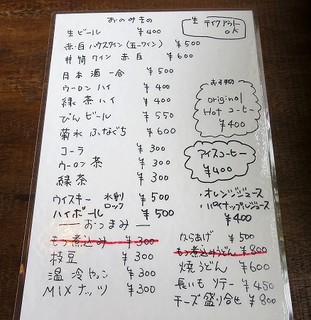 おのみもの
生ビール ¥400
赤・白ハウスワイン(五一ワイン) ¥500
井筒ワイン 赤白 ¥600
日本酒一合 ¥500
ウーロンハイ ¥400
緑茶ハイ ¥400
びんビール ¥550
菊水ふなぐち ¥600
コーラ ¥300
ウーロン茶 ¥300
緑茶 ¥300
ウイスキー 水割 ロック ¥500
ハイボール ¥500
生 テイクアウト
OK
おすすめ
original
Hot コーヒー
¥400
アイスコーヒー
¥400
・オレンジジュース
・パイナップルジュース
¥400
おつまみ
もつ煮込み ¥300
枝豆 ¥300
温冷やっこ ¥300
MIXナッツ ¥300
からあげ ¥500
もつ煮込みうどん ¥800
焼うどん ¥600
長いもソテー ¥450
チーズ盛り合せ ¥800